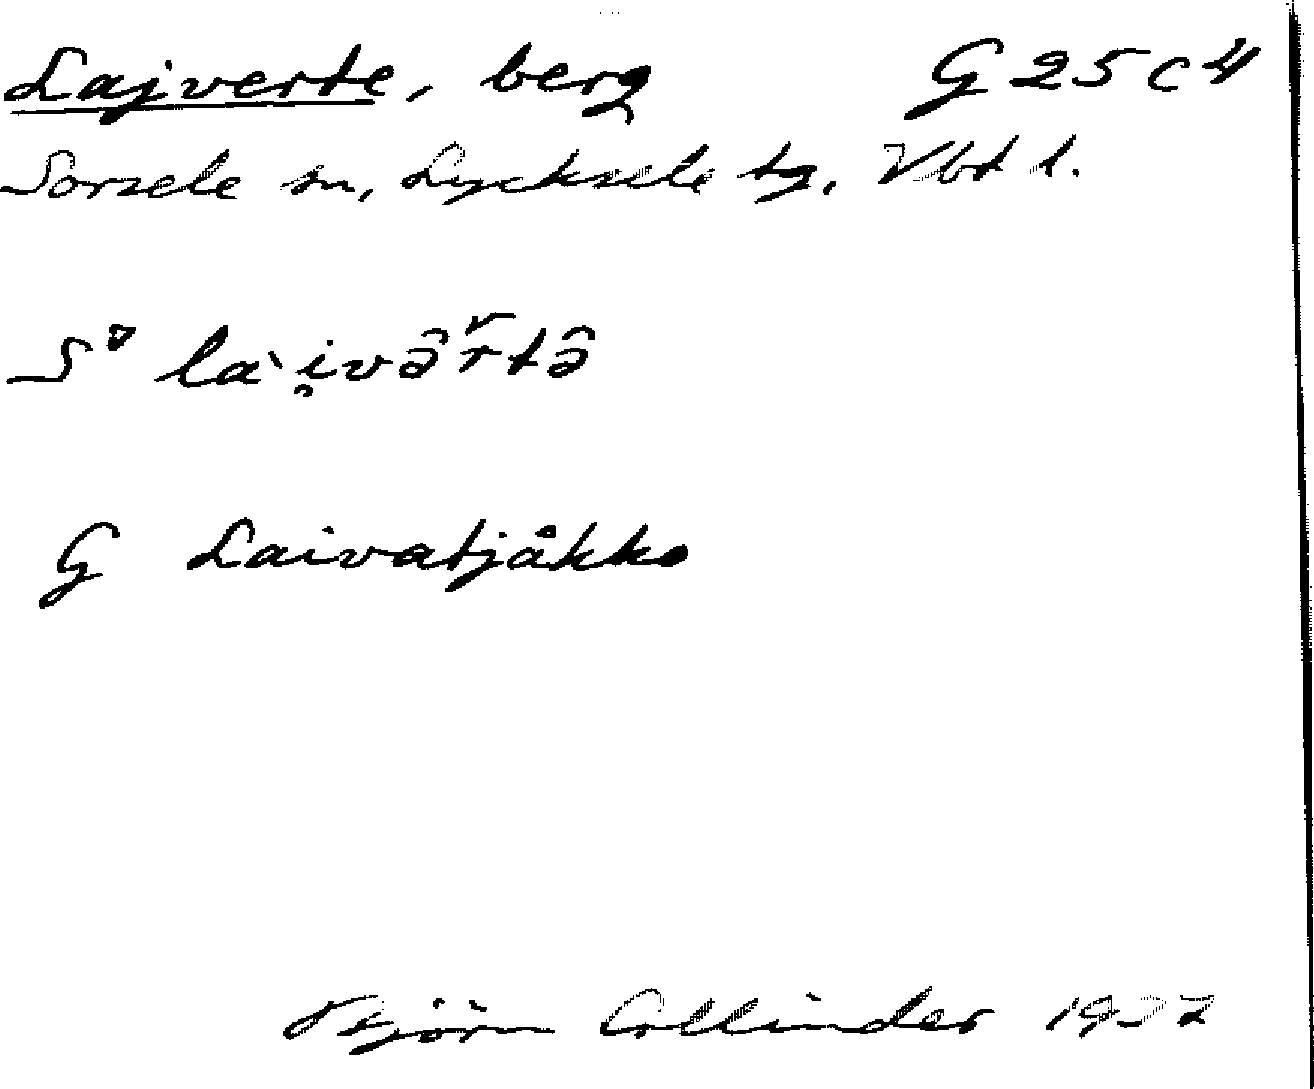 Lajverte, berg G 25 c 4
Sorsele sn, Lycksele tg, Vbt l.
Sᵛ la`i̯və̂řtə̂
G Laivatjåkko
Björn Collinder 1937